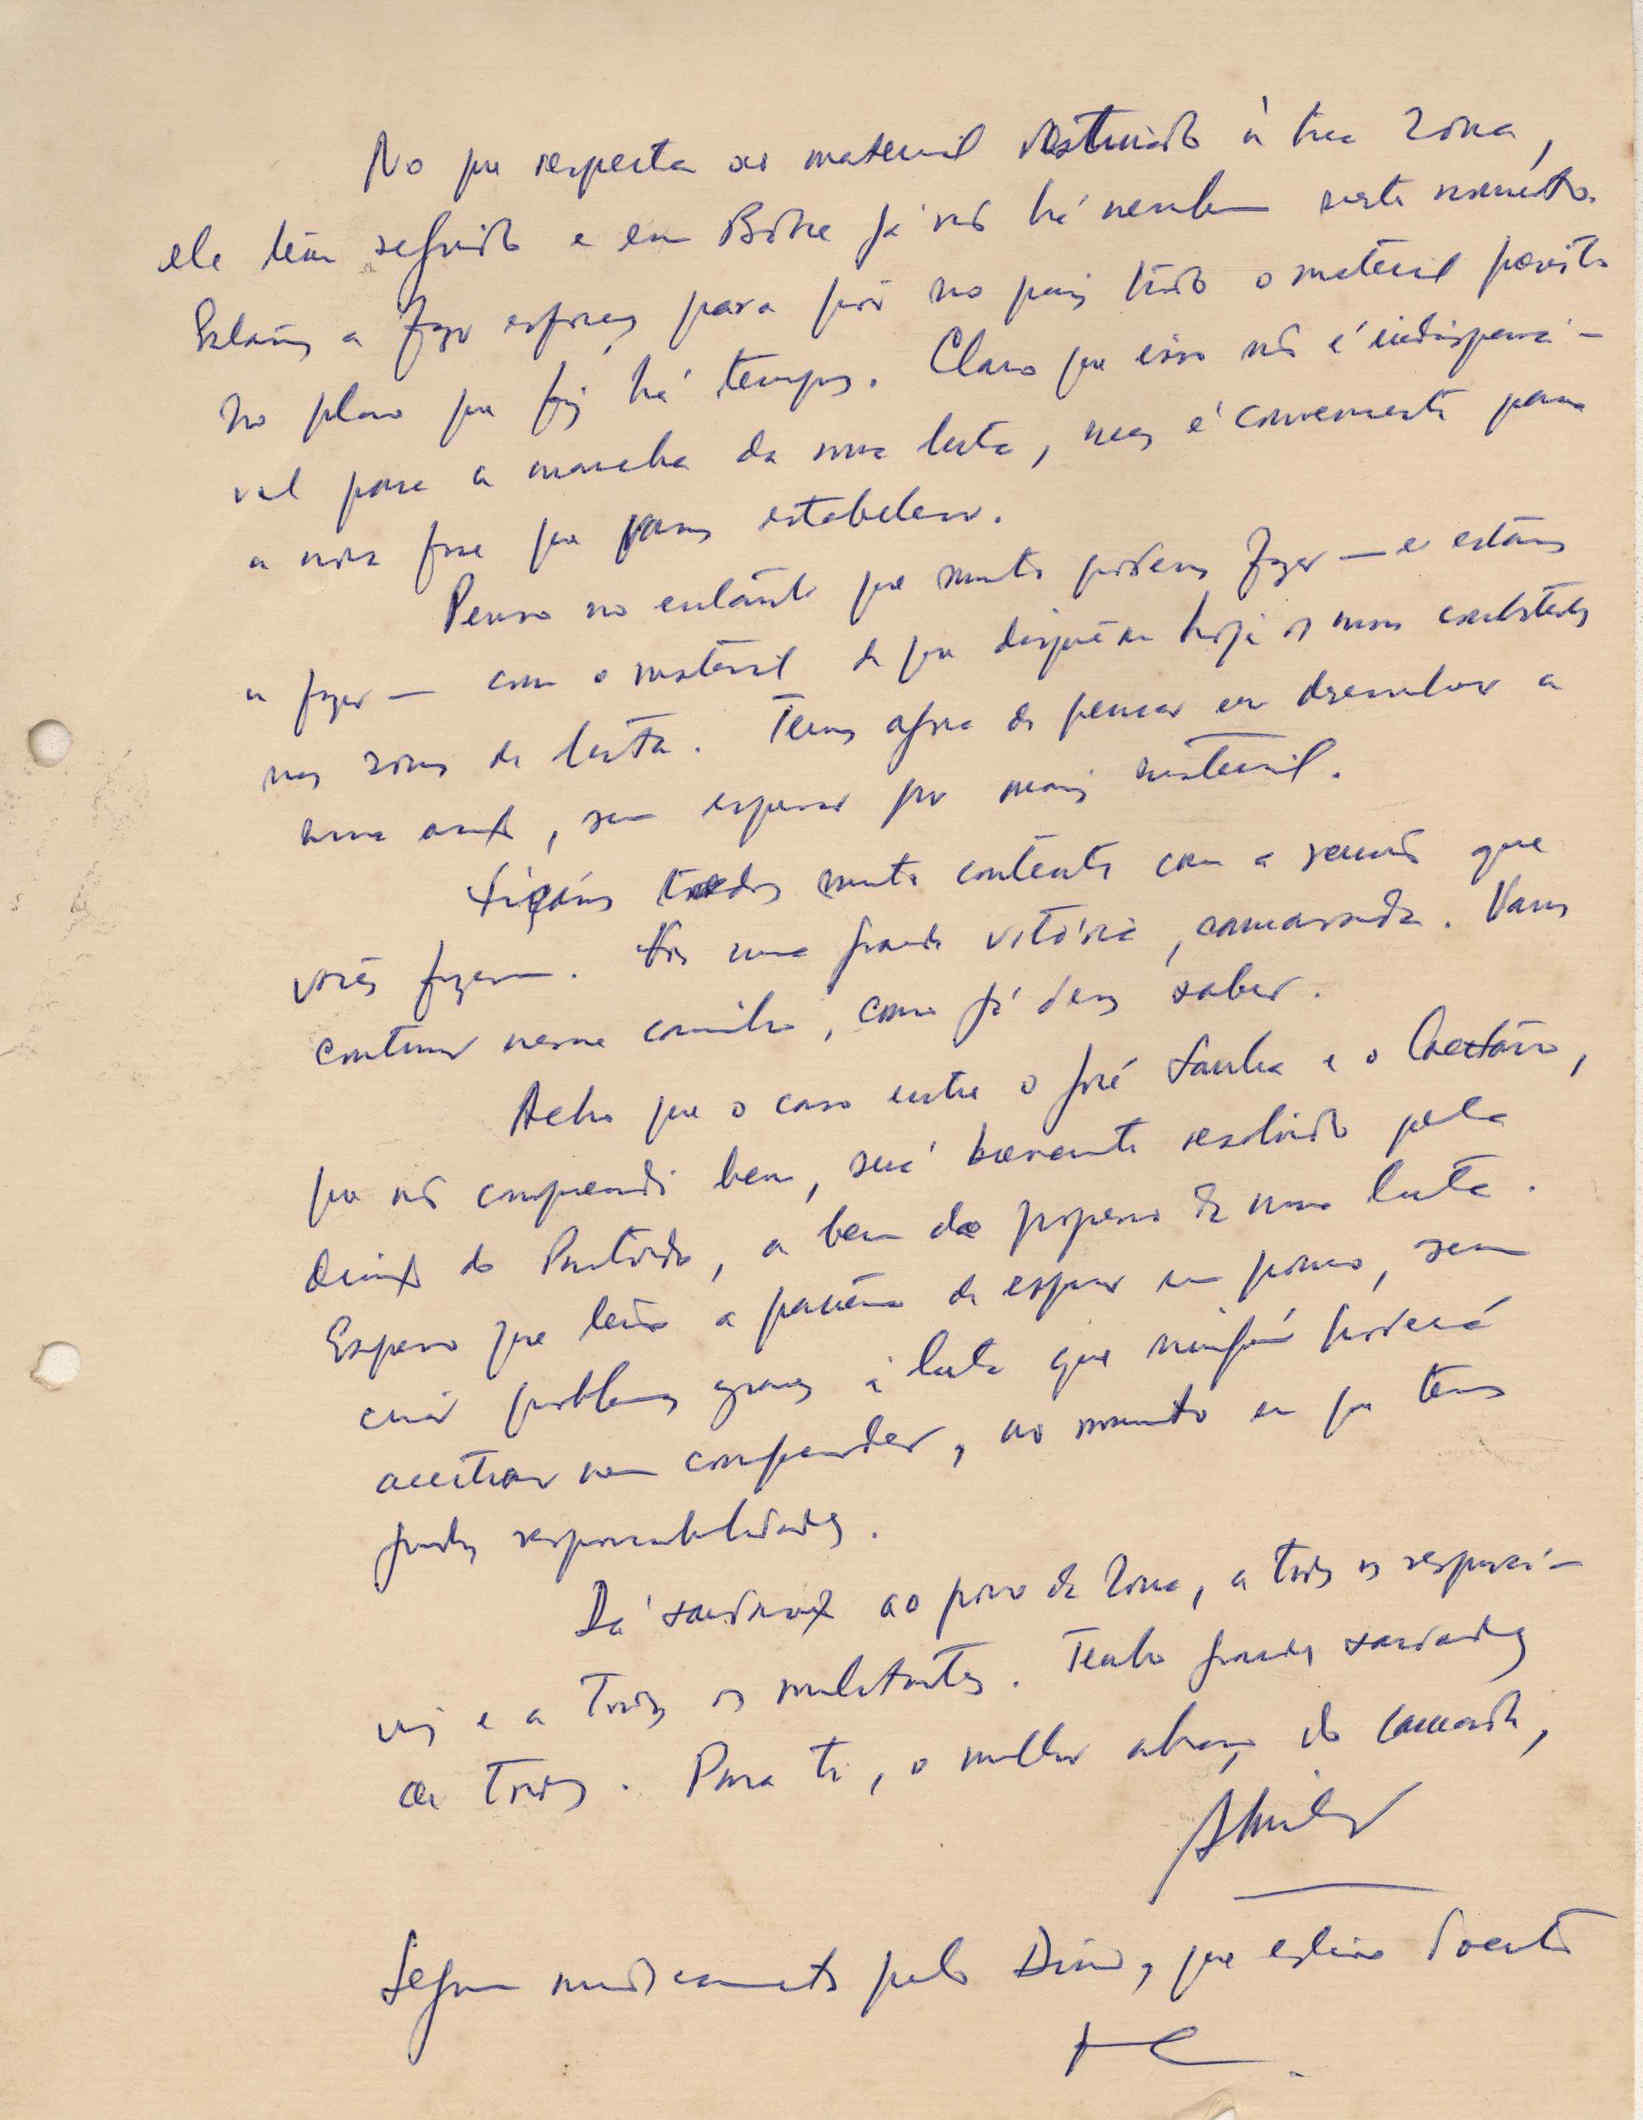 No que respeita ao material destinado à tua zona,
ele tem seguido e em Boké já não há nenhum neste momento.
Estamos a fazer esforços para pôr no país todo o material previsto
no plano que fiz há tempos. Claro que isso não é indispensá-
vel para a marcha da nossa luta, mas é conveniente para
a nova fase que vamos estabelecer.
Penso no entanto que muito podemos fazer — e estamos
a fazer — com o material de que dispõem hoje os nossos combatentes
nas zonas de luta. Temos agora de pensar em desenvolver a
nossa acção, sem esperar por mais material.
Ficámos todos muito contentes com a reunião que
vocês fizeram. Foi uma grande vitória, camarada. Vamos
continuar nesse caminho, como já deves saber.
Acho que o caso entre o José Sanha e o Caetano,
que não compreendi bem, será brevemente resolvido pela
direcção do Partido, a bem do progresso da nossa luta.
Espero que terão a paciência de esperar um pouco, sem
criar problemas graves à luta que ninguém poderá
aceitar nem compreender, no momento em que temos
grandes responsabilidades.
Dá saudações ao povo da zona, a todos os responsá-
veis e a todos os militantes. Tenho grandes saudades
de todos. Para ti, o melhor abraço do camarada,
Amílcar
Seguem medicamentos pelo Dino, que esteve doente